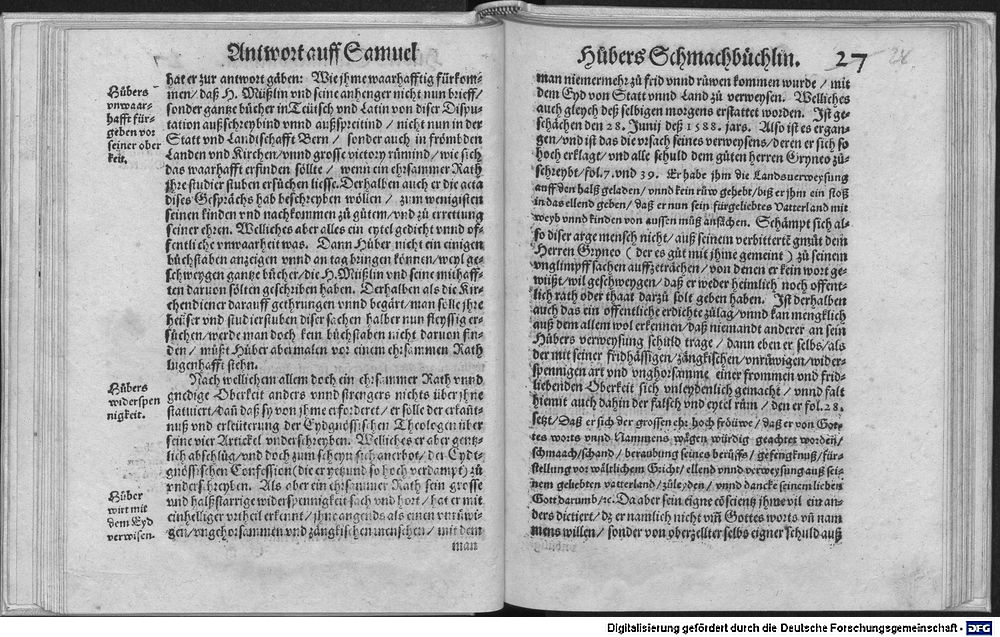 Antwort auff Samuel
hat er zur antwort gäben: Wie jhme waarhafftig fürkom-
men / daß H. Müßlin vnd seine anhenger nicht nun brieff /
sonder gantze bücher in Teütsch vnd Latin von diser Dispu-
tation außschreybind vnnd außspreitind / nicht nun in der
Statt vnd Landtschafft Bern / sonder auch in frömbden
Landen vnd Kirchen / vnnd grosse victory rümind / wie sich
das waarhafft erfinden söllte / wenn ein ehrsammer Rath
jhre studier stuben ersüchen liesse. Derhalben auch er die acta
dises Gesprächs hab beschreyben wöllen / zum wenigisten
seinen kinden vnd nachkommen zü gütem / vnd zü errettung
seiner ehren. Welliches aber alles ein eytel gedicht vnnd of-
fentliche vnwaarheit was. Dann Hüber nicht ein einigen
büchstaben anzeigen vnnd an tag bringen können / weyl ge-
schweygen gantze bücher / die H. Müßlin vnd seine mithaff-
ten daruon sölten geschriben haben. Derhalben als die Kir-
chendiener darauff gethrungen vnnd begärt / man solle jhre
heüser vnd studierstuben diser sachen halber nun fleyssig er-
süchen / werde man doch kein büchstaben nicht daruon fin-
den / müßt Hüber abermalen vor einem ehrsammen Rath
lugenhafft stehn.
Nach wellichem allem doch ein ehrsammer Rath vnnd
gnedige Oberkeit anders vnnd strengers nichts über jhne
statuiert / dañ daß sy von jhme erforderet / er solle der erkañt-
nuß vnd erleüterung der Eydgnössischen Theologen über
seine vier Artickel vnderschreyben. Welliches er aber gentz-
lich abschlüg / vnd doch zum scheyn sich anerbot / der Eydt-
gnössischen Confession (die er yetzund so hoch verdampt) zü
vnderschreyben. Als aber ein ehrsammer Rath sein grosse
vnd halßstarrige widerspennigkeit sach vnd hort / hat er mit
einhelliger vrtheil erkennt / jhne angends als einen vnrüwi-
gen / vngehorsammen vnd zänckischen menschen / mit dem
man
Hübers
vnwaar-
hafft für-
geben vor
seiner ober
keit.
Hübers
widerspen
nigkeit.
Hüber
wirt mit
dem Eyd
verwisen.
Hübers Schmachbüchlin. 27
man niemermehr zü frid vnnd rüwen kommen wurde / mit
dem Eyd von Statt vnnd Land zü verweysen. Welliches
auch gleych deß selbigen morgens erstattet worden. Ist ge-
schächen den 28. Junij deß 1588. jars. Also ist es ergan-
gen / vnd ist das die vrsach seines verweysens / deren er sich so
hoch erklagt / vnd alle schuld dem güten herren Gryneo zü-
schreybt / fol. 7. vnd 39. Er habe jhm die Landsverweysung
auff den halß geladen / vnnd kein rüw gehebt / biß er jhm ein stoß
in das ellend geben / daß er nun sein fürgeliebtes Vatterland mit
weyb vnnd kinden von aussen müß ansächen. Schämpt sich al-
so diser arge mensch nicht / auß seinem verbittertē gmüt dem
Herren Gryneo (der es güt mit jhme gemeint) zü seinem
vnglimpff sachen auffzeträchen / von denen er kein wort ge-
wüßt / wil geschweygen / daß er weder heimlich noch offent-
lich rath oder thaat darzü solt geben haben. Ist derhalben
auch das ein offentliche erdichte zülag / vnnd kan mengklich
auß dem allem wol erkennen / daß niemandt anderer an sein
Hübers verweysung schuld trage / dann eben er selbs / als
der mit seiner fridhässigen / zängkischen / vnrüwigen / wider-
spennigen art vnd vnghorsamme einer frommen vnd frid-
liebenden Oberkeit sich vnleydenlich gemacht / vnnd falt
hiemit auch dahin der falsch vnd eytel rüm / den er fol. 28.
setzt / Daß er sich der grossen ehr hoch fröüwe / daß er von Got-
tes worts vnnd Nammens wägen würdig geachtet worden /
schmaach / schand / beraubung seines berüffs / gefengknuß / für-
stellung vor wältlichem Gricht / ellend vnnd verweysung auß sei-
nem geliebten vatterland / züleyden / vnnd dancke seinem lieben
Gott darumb / ꝛc. Da aber sein eigne cōscientz jhme vil ein an-
ders dictiert / dz er namlich nicht vm̄ Gottes worts vn̄ nam
mens willen / sonder von oberzellter selbs eigner schuld auß
Digitalisierung gefördert durch die Deutsche Forschungsgemeinschaft - DFG